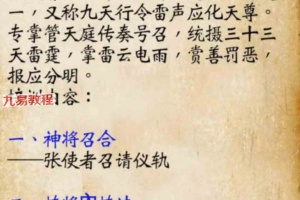 一，又称九天行令雷声应化天尊。
专掌管天庭传奏号召，统摄三十三
天雷霆，掌雷云电雨，赏善罚恶，
报应分明。
内容：
九易教程
一、神将召合
——张使者召请仪轨